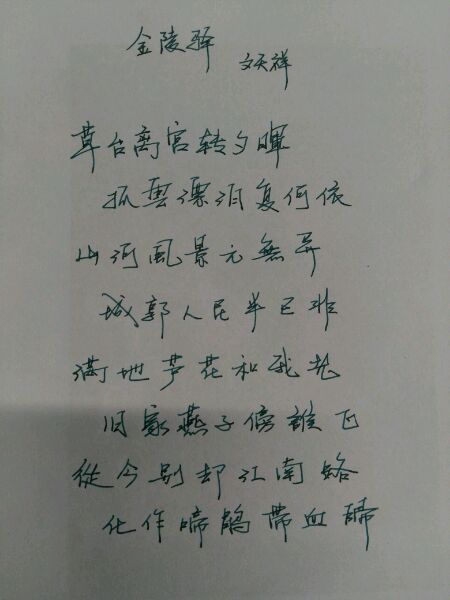 金陵驿
文天祥
草台离宫转夕暉
孤雲漂泊复何依
山河風景元無异
城郭人民半已非
满地芦花和我老
旧家燕子傍誰飞
從今别却江南路
化作啼鹃带血歸